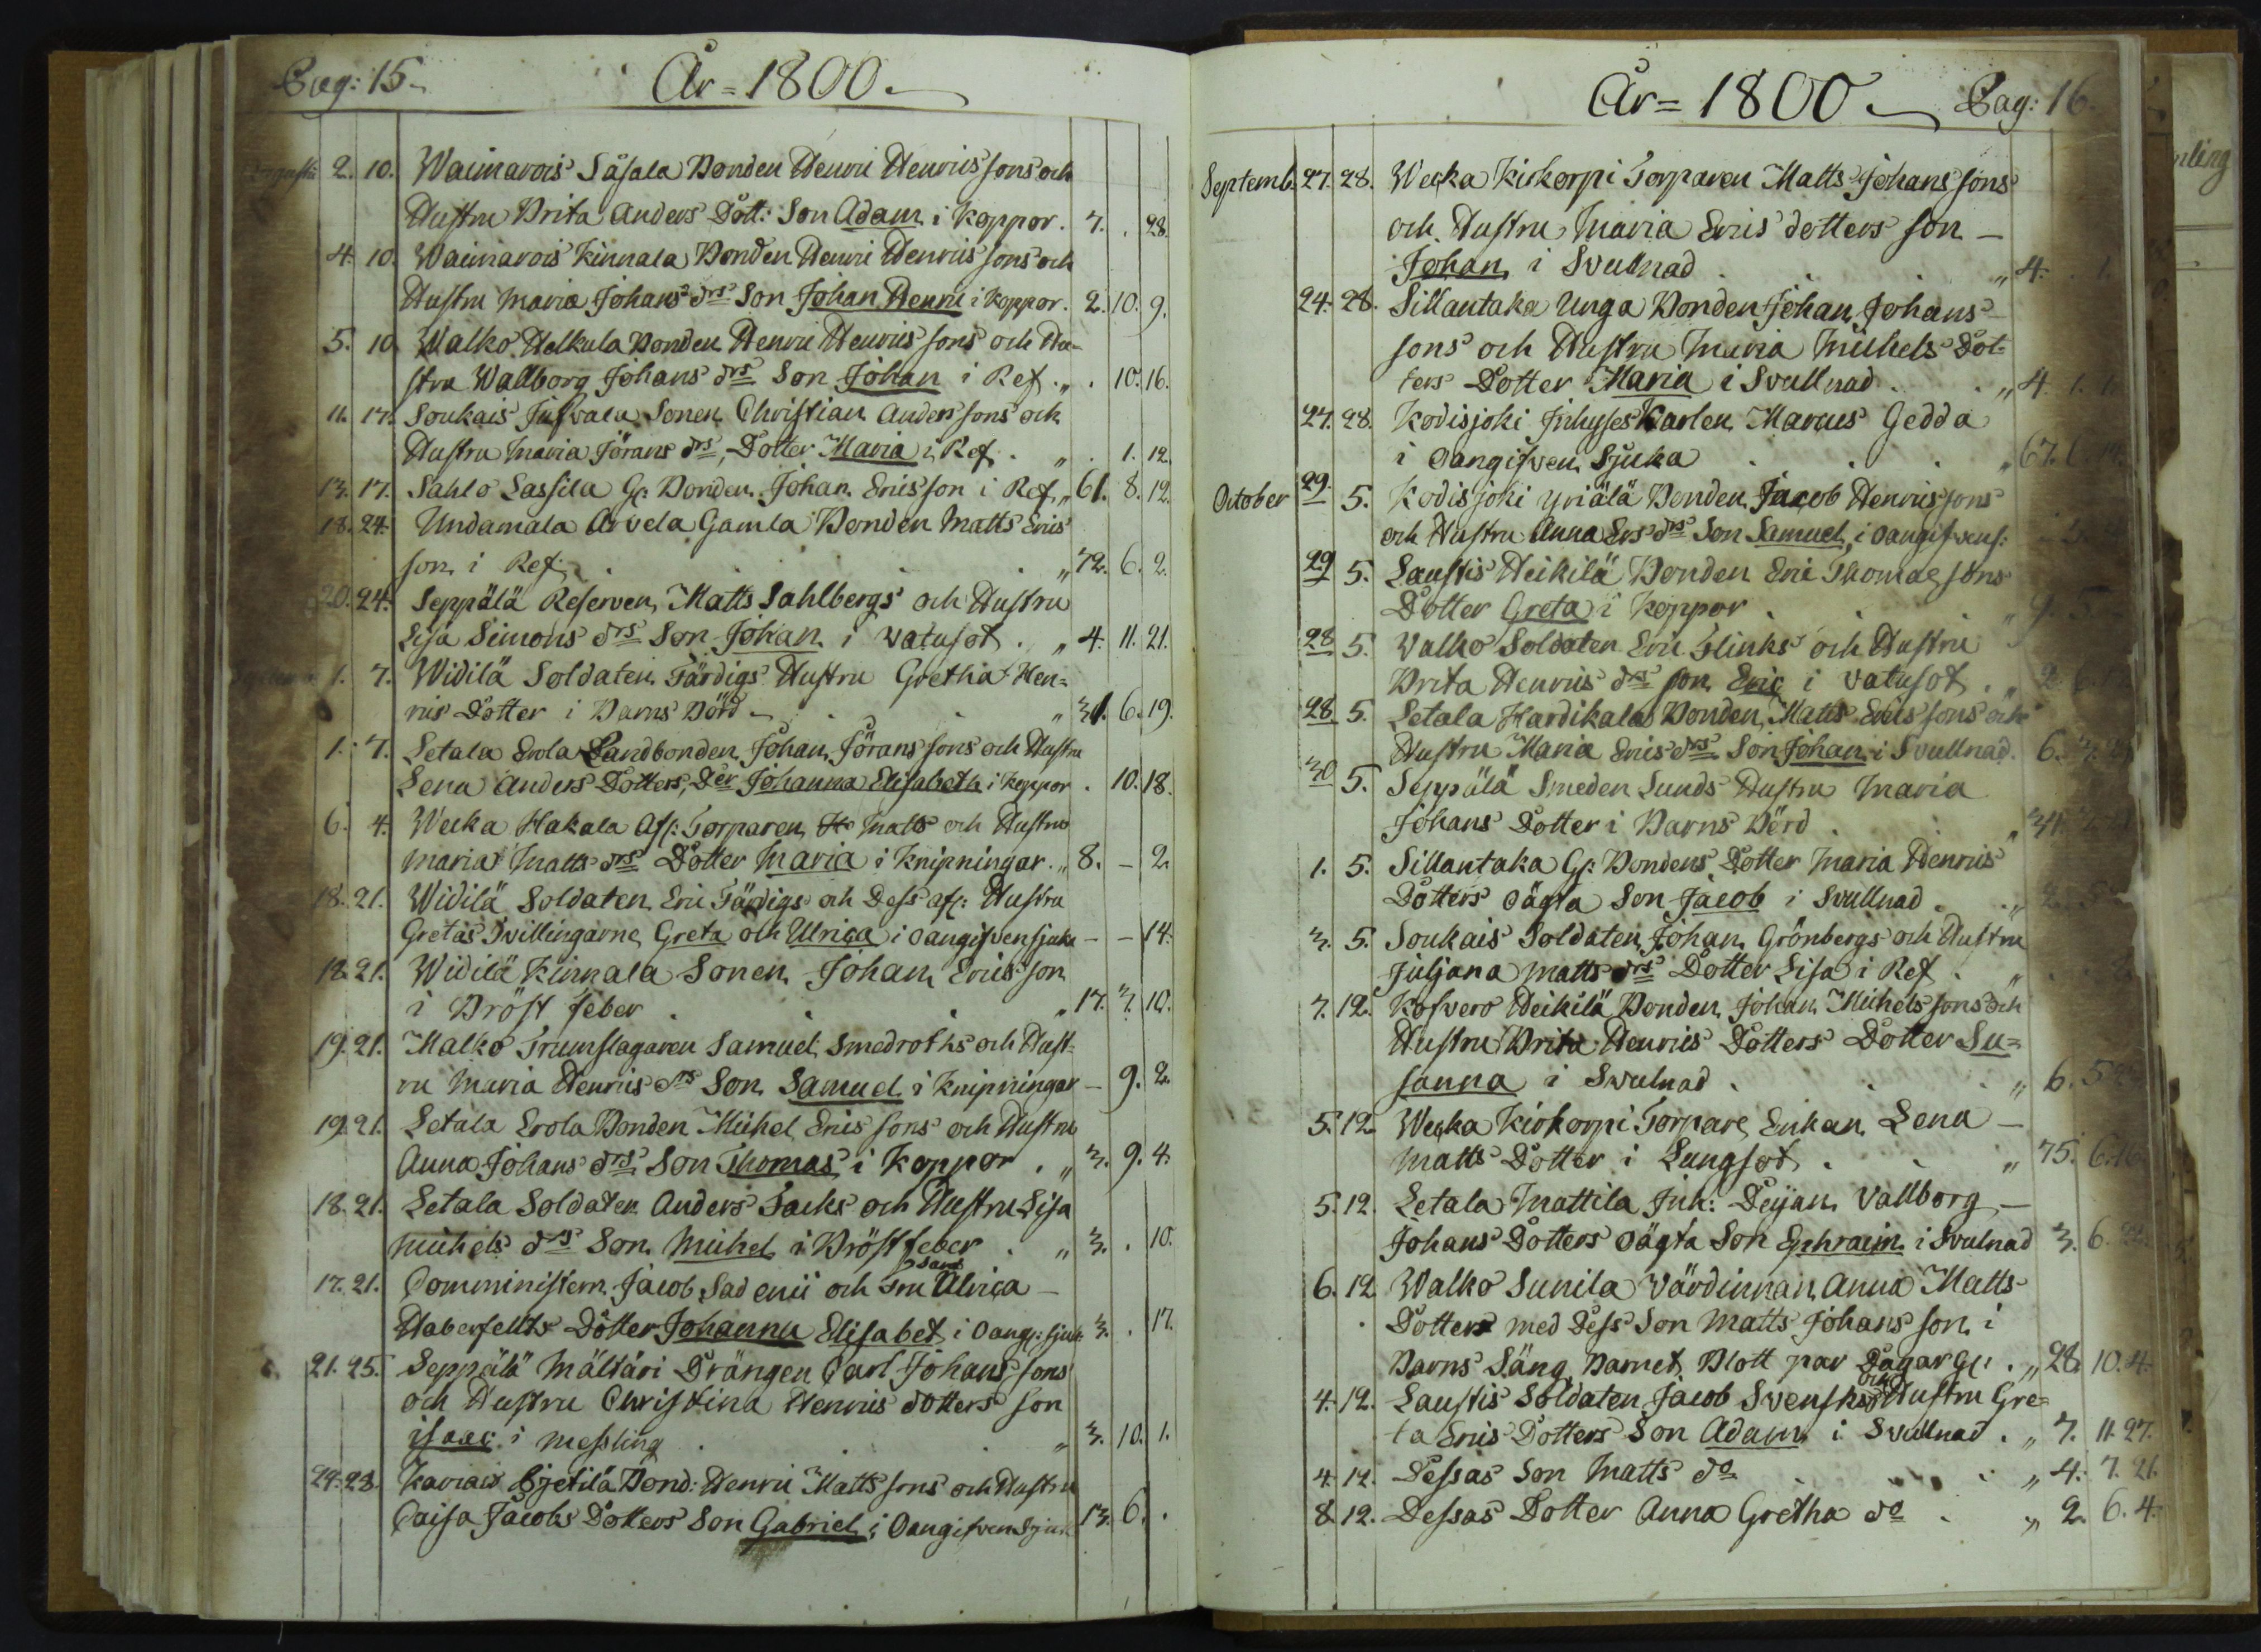 Pag: 15.
År = 1800.
Augusti 2. 10. Waimarois Såsala Bonden Henric Henricssons och
Hustru Brita Anders Dott: Son Adam i Koppor. 7. . 28.
4. 10. Waimarois Kinnala Bonden Henric Henrics sons och
Hustru Maria Johans drs Son Johan Henric i Koppor. 2. 10. 9.
5. 10. Walko Helkula Bonden Henric Henrics sons och Hu-
stru Wallborg Johans drs Son Johan i Ref. „ . 10. 16.
11. 17. Soukais Jusvala Sonen Christian Anders sons och
Hustru Maria Jörans drs, Dotter Maria i Ref. „ . 1. 12.
13. 17. Sahlo Lassila G: Bonden Johan Ericsson i Ref „ 61. 8. 12.
18. 24. Undamala Arvela Gamla Bonden Matts Erics
son i Ref. „ 72. 6. 2.
20. 24. Seppälä Reserven Matts Sahlbergs och Hustru
Lisa Simons drs Son Johan i Vatusot. „ 4. 11. 21.
1. 7. Widilä Soldaten Färdigs Hustru Gretha Hen=
rics Dotter i Barns Börd - „ 31. 6. 19.
1. 7. Letala Erola Landbonden Johan Jörans sons och Hustru
Lena Anders Dotters, Der Johanna Elisabeth i Koppor . 10. 18.
6. 4. Wecka Hakala Afs: Torparen Matts och Hustru
Maria Matts drs Dotter Maria i Knipningar. „ 8. - 2
18. 21. Widilä Soldaten Eric Färdigs och Dess afs: Hustru
Gretas Tvillingarne Greta och Ulrica i Oangifven sjuka - - 14.
18. 21. Widilä Kinnala Sonen Johan Ericsson
i Bröst feber . „ 17. 7. 10.
19. 21. Malko Trumslagaren Samuel Smedroths och Hust-
ru Maria Henrics drs Son Samuel i Knipningar - 9. 2.
19. 21. Letala Erola Bonden Michel Erics sons och Hustru
Anna Johans drs Son Thomas i Koppor . „ 3. 9. 4.
18. 21. Letala Soldaten Anders Tacks och Hustru Lisa
Michels drs Son Michel i Bröst feber . „ 3. . 10.
17. 21. Comministern Jacob Sadenii och Fru Ulrica -
Haberfellts Dotter Johanna Elisabet i Oang: sjuk: 3. . 17.
21. 25. Seppälä Mältäri Drängen Carl Johans sons
och Hustru Christina Henrics dotters son
isaac i messling „ 3. 10. 1.
24. 28. Kariais Bjetilä Bond: Henric Matts sons och Hustru
Caisa Jacobs Dotters Son Gabriel i Oangifven Sjuk 13. 6. .
År = 1800. Pag: 16.
Septemb. 27. 28. Wecka Kirkorpi Torparen Matts Johans sons
och Hustru Maria Erics dotters son -
Johan i Svullnad „ 4. . 1.
24. 28. Sillantaka Unga Bonden Johan Johans-
sons och Hustru Maria Michels Dot-
ters Dotter Maria i Svullnad . „ 4. 1. 1.
27. 28. Kodisjoki Inhyses Karlen Marcus Gedda
i Oangifven Sjuka „ 67. 6. 14.
October 29. 5. Kodisjoki Yriälä Bonden Jacob Henricssons
och Hustru Anna Ers drs Son Samuel, i Oangifven s:
29 5. Laustis Heikilä Bonden Eric Thomæ sons
Dotter Greta i Koppor „ 9. 5.
28 5. Walko Soldaten Eric Flinks och Hustru
Brita Henrics drs son Eric i Vatusot. „ 2. 6.
28 5. Letala Hardikala Bonden Matts Erics sons och
Hustru Maria Erics drs Son Johan i Svullnad. 6. 7.
30 5. Seppälä Smeden Lunds Hustru Maria
Johans Dotter i Barns Börd . „ 34.
1. 5. Sillantaka G: Bondens Dotter Maria Henrics
Dotters oägta Son Jacob i Svullnad . „ 2. 5.
3. 5. Soukais Soldaten Johan Grönbergs och Hustru
Juljana Matts drs Dotter Lisa i Ref . „
7. 12. Kosvero Heikilä Bonden Johan Michels sons och
Hustru Brita Henrics Dotters Dotter Su=
sanna i Swulnad . „ 6. 5.
5. 12. Wecka Kirkorpi Torpare Enkan Lena -
Matts Dotter i Lungsot . „ 75. 6. 16.
5. 12. Letala Mattila Inh: Peijan Vallborg -
Johans Dotters Oägta Son Ephraim i Svulnad 3. 6. 22.
6. 12. Walko Sunila Värdinnan Anna Matts-
Dotter med Dess Son Matts Johans son i
Barns Säng Barnet Blott par Dagar G: . „ 28. 10. 4.
4. 12. Laustis Soldaten Jacob Svensks och Hustru Gre=
ta Erics Dotters Son Adam i Svullnad . „ 7. 11. 27.
4. 12. Dessas Son Matts do „ 4. 7. 21.
8. 12. Dessas Dotter Anna Gretha do . „ 2. 6. 4.